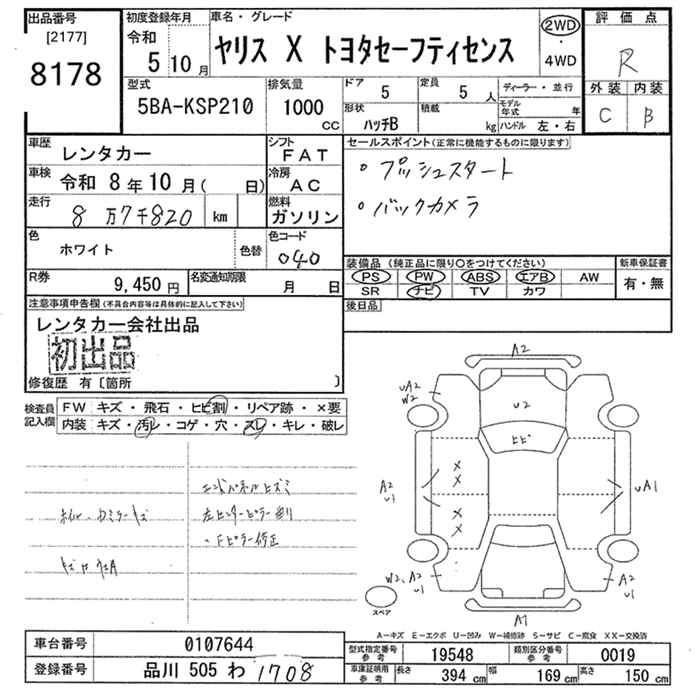 出品番号
[2177]
8178
初度登録年月
令和
5 10月
車名・グレード
ヤリス X トヨタセーフティセンス
2WD
・
4WD
評価点
R
外装 内装
C B
型式
5BA-KSP210
排気量
1000
cc
ドア
5
定員
5 人
形状
ハッチB
積載
kg
ディーラー・並行
モデル年式 年
ハンドル 左・右
車歴
レンタカー
シフト
FAT
車検
令和 8年10月( 日)
冷房
AC
走行
8万7千820 km
燃料
ガソリン
色
ホワイト
色替
色コード
040
R券
9,450円
名変通知期限
月 日
セールスポイント(正常に機能するものに限ります)
・プッシュスタート
・バックカメラ
装備品(純正品に限り○をつけてください)
PS PW ABS エアB AW
SR ナビ TV カワ
新車保証書
有・無
後日品
注意事項申告欄(不具合内容等は具体的に記入して下さい)
レンタカー会社出品
初出品
修復歴 有〔箇所 〕
検査員
記入欄
FW キズ・飛石・ヒビ割・リペア跡・×要
内装 キズ・汚レ・コゲ・穴・スレ・キレ・破レ
エンドパネルヒズミ
左センターピラー曲り
・Fピラー修正
A2
UA2
W2
U2
ヒビ
A2
U1
×
×
×
×
UA1
W2、A2
U1
A2
U1
A1
スペア
A-キズ E-エクボ U-凹み W-補修跡 S-サビ C-腐食 XX-交換済
車台番号 0107644
登録番号 品川 505 わ 1708
型式指定番号
参考
19548
類別区分番号
参考
0019
車庫証明用
参考
長さ 394 cm
幅 169 cm
高さ 150 cm